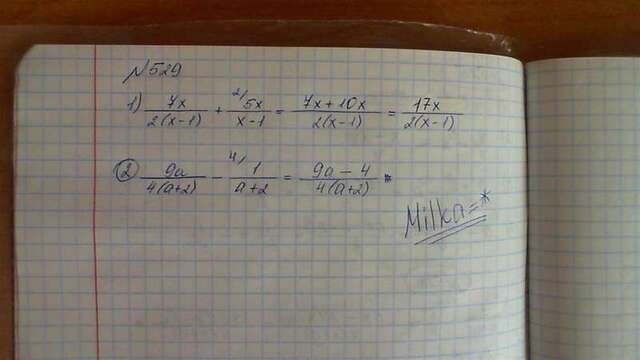 №529
1) 7x/2(x-1) + 2/ 5x/x-1 = 7x+10x/2(x-1) = 17x/2(x-1)
2) 9a/4(a+2) - 4/ 1/a+2 = 9a-4/4(a+2)
Milka=*